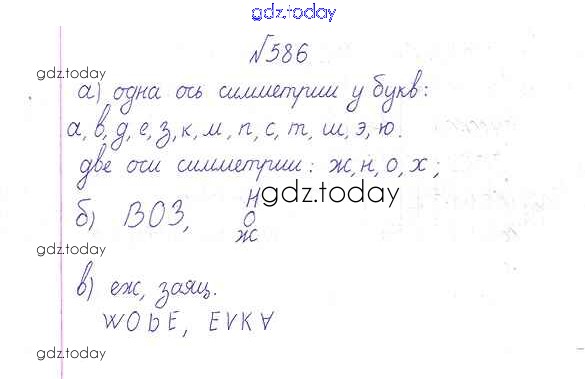 gdz.today
№586
gdz.today
а) одна ось симметрии у букв:
а, в, д, е, з, к, м, п, с, т, ш, э, ю.
gdz.today
две оси симметрии: ж, н, о, х;
Н
gdz.today
б) ВОЗ, О
Ж
gdz.today
в) еж, заяц.
WODE, EVKA
gdz.today